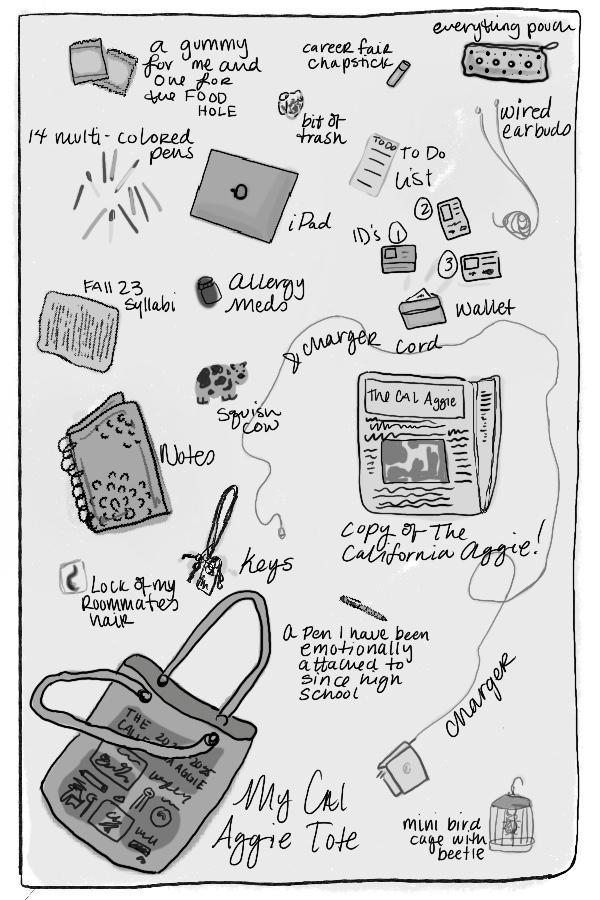 everything pouch
a gummy
for me and
one for
the FOOD
HOLE
career fair
chapstick
bit of
trash
wired
earbuds
14 multi-colored
pens
TO DO
TO DO
List
iPad
ID's 1
2
3
Fall 23
Syllabi
Allergy
Meds
Wallet
charger cord
Squish
cow
The CAL Aggie
Notes
Copy of The
California Aggie!
Keys
Lock of my
Roommates
hair
A Pen I have been
emotionally
attached to
since high
school
charger
THE
AGGIE
My Cal
Aggie Tote
mini bird
cage with
beetle